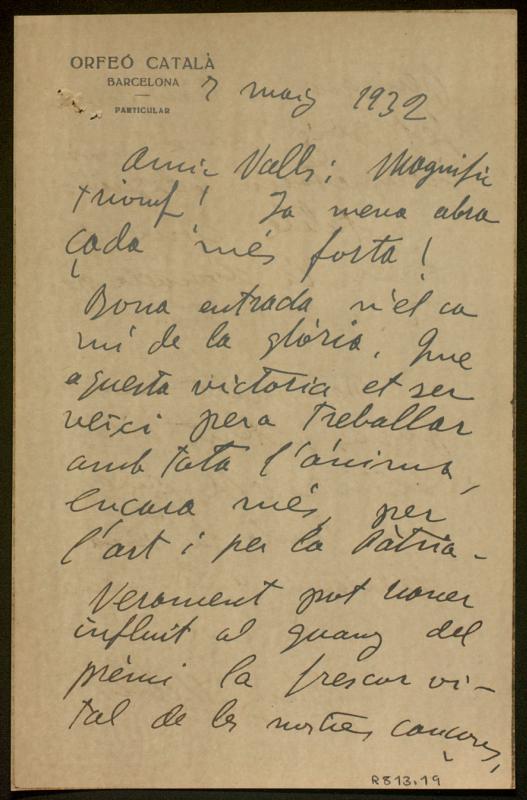 ORFEÓ CATALÀ
BARCELONA
PARTICULAR
7 maig 1932
Amic Valls: Magnífic
triomf! Ja meva abra
çada més forta!
Bona entrada n'el ca
mí de la glòria. Que
aquesta victoria et ser
veixi pera treballar
amb tota l'ánima,
encara més, per
l'art i per la Pàtria -
Verament pot haver
influit al guany del
prèmi la frescor vi-
tal de les nostres cançons,
R813.19